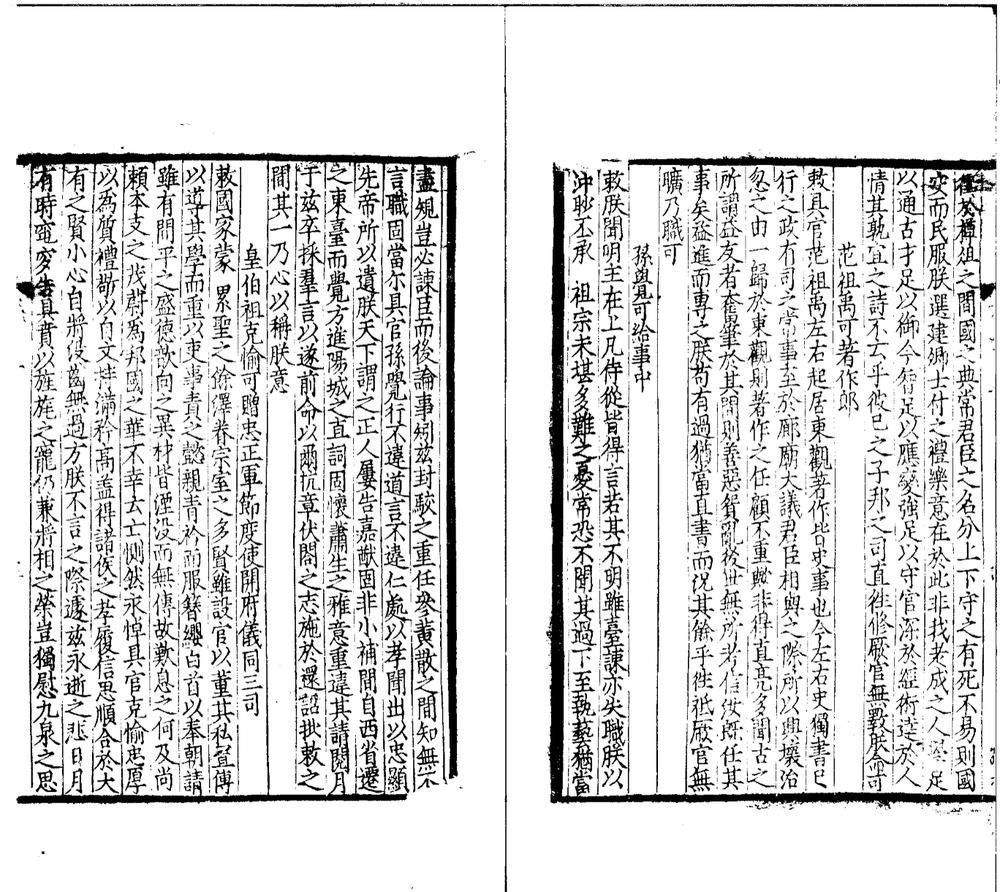 樽俎之間國之典常君臣之名分上下守之有死不易則國
安而民服朕選建卿士付之禮樂意在於此非我老成之人學足
以通古才足以御今智足以應變強足以守官深於經術達於人
情其孰宜之詩不云乎彼已之子邦之司直徃修厥官無斁朕命可
范祖禹可著作郎
敕具官范祖禹左右起居東觀著作皆史事也今左右史獨書已
行之政有司之常事至於廊廟大議君臣相與之際所以興壞治
忽之由一歸於東觀則著作之任顧不重歟非得直亮多聞古之
所謂益友者奮筆於其間則善惡貿亂後世無所考信汝既任其
事矣益進而專之朕苟有過猶當直書而況其餘乎徃祗厥官無
曠乃職可
孫覺可給事中
敕朕聞明主在上凡侍從皆得言若其不明雖臺諫亦失職朕以
沖眇丕承 祖宗未堪多難之憂常恐不聞其過下至執藝猶當
盡規豈必諫臣而後論事矧茲封駮之重任參黃散之間知無不
言職固當尒具官孫覺行不違道言不違仁處以孝聞出以忠顯
先帝所以遺朕天下謂之正人屢告嘉猷固非小補間自西省遷
之東臺而覺方進陽城之直詞固懷蕭生之雅意重違其請閱月
于茲卒採羣言以遂前命以爾抗章伏閤之志施於還詔批敕之
間其一乃心以稱朕意
皇伯祖克愉可贈忠正軍節度使開府儀同三司
敕國家蒙 累聖之餘澤眷宗室之多賢雖設官以董其私置傅
以導其學而重以吏事責之懿親青衿而服簪纓白首以奉朝請
雖有間平之盛德歆向之異材皆湮没而無傳故歎息之何及尚
頼本支之茂蔚為邦國之華不幸云亡惻然永悼具官克愉忠厚
以為質禮敬以自文持滿矜高盖得諸侯之孝履信思順合於大
有之賢小心自將没齒無過方朕不言之際遽茲永逝之悲日月
有時窀穸告具賁以旌旄之寵仍兼將相之榮豈獨慰九泉之思